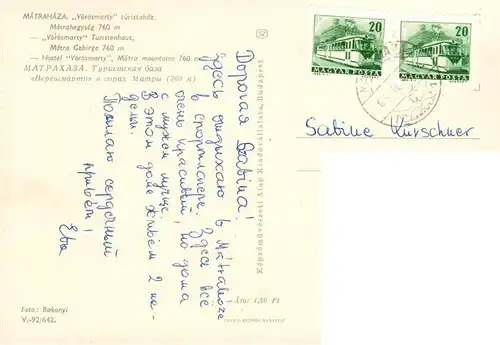 MÁTRAHÁZA. „Vörösmarty" túristaház.
Mátrahegység 760 m
— „Vörösmarty" Turistenhaus,
Mátra Gebirge 760 m
— Hostel "Vörösmarty", Mátra mountains 760 m
МАТРАХАЗА. Туристская база
«Верешмарти» в горах Матры (760 м)
Дорогая Сабина!
Здесь отдыхаю в Mátraháza
в спортлагере. Здесь всё
очень красивый, но дома
с мужем лучше.
В этом доме живём 2 не-
дели.
Посылаю сердечный
привет!
Ева
Foto: Bakonyi
V.-92/642.
Képzőművészeti Alap Kiadóvállalata, Budapest
Ára: 1,50 Ft
20
MAGYAR POSTA
20
MAGYAR POSTA
Sabine Kurschner